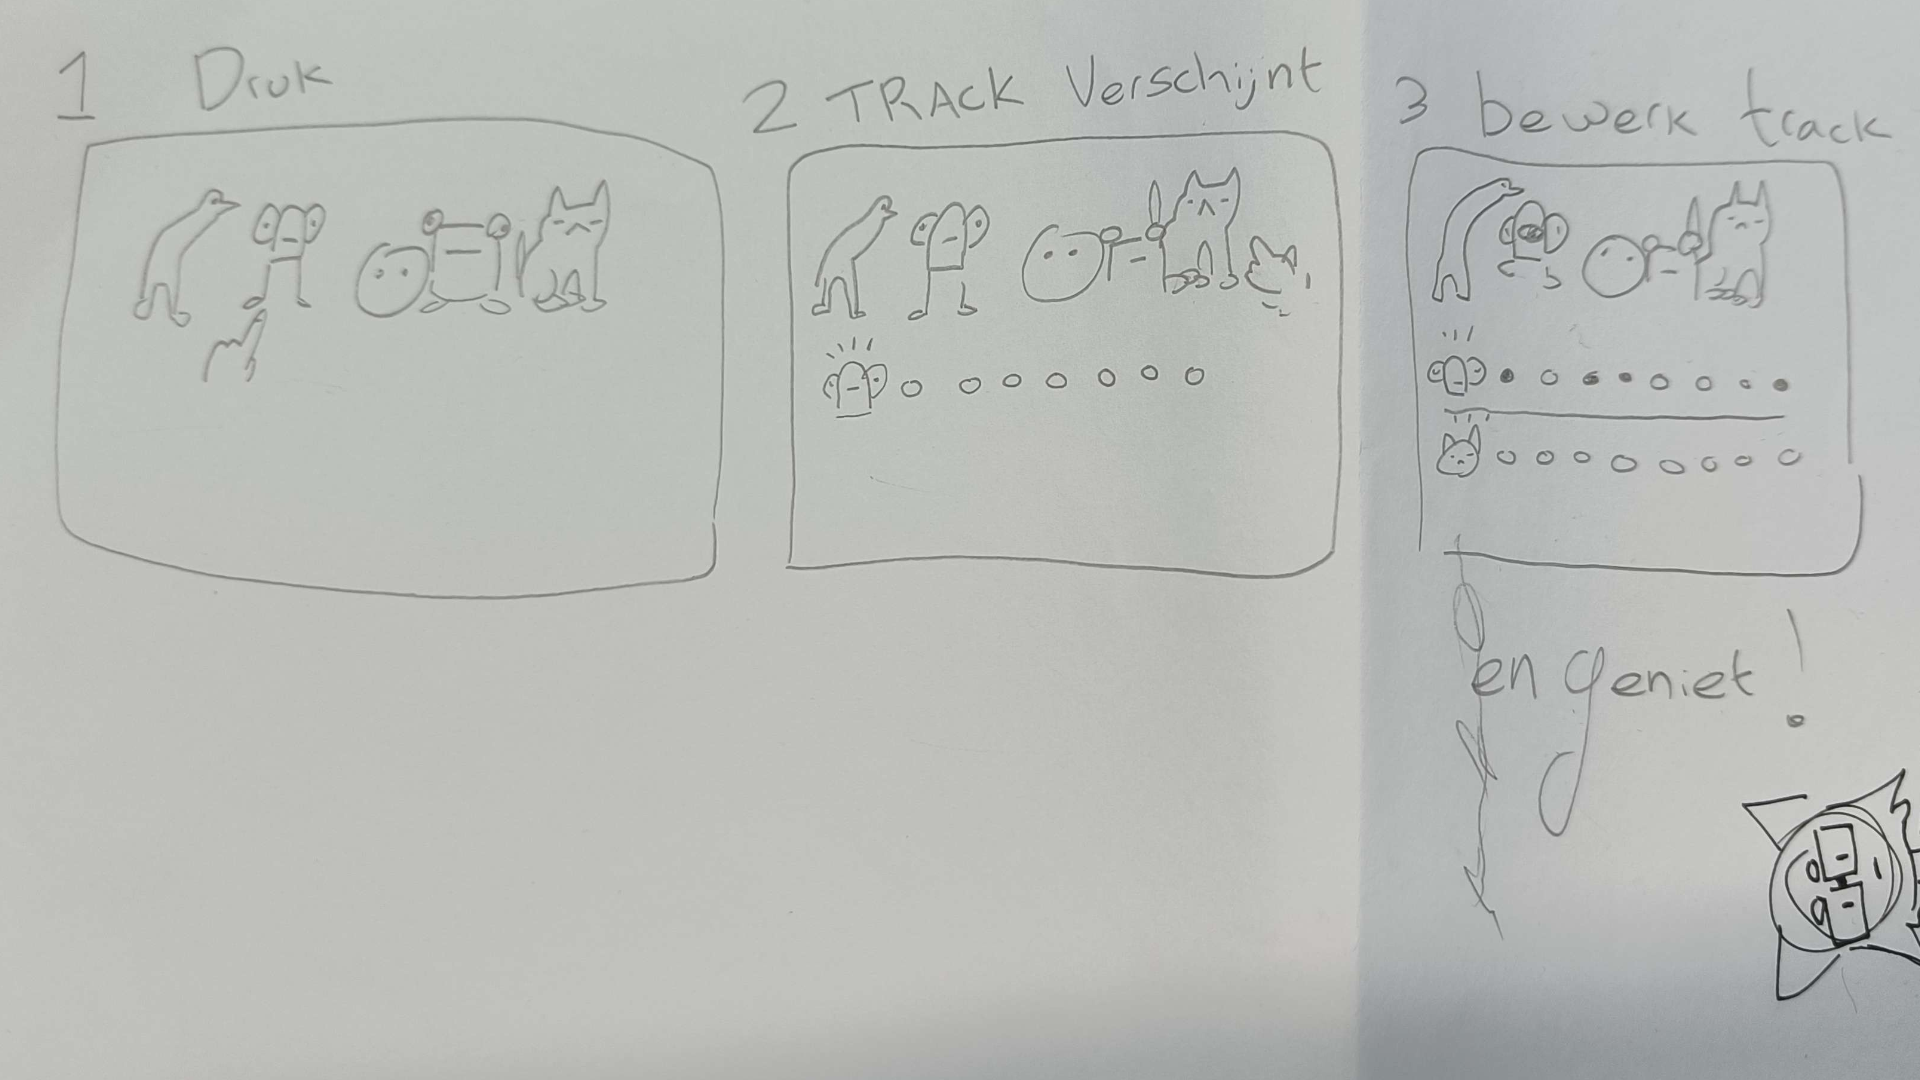 1 Druk
2 TRACK Verschijnt
3 bewerk track
en geniet!